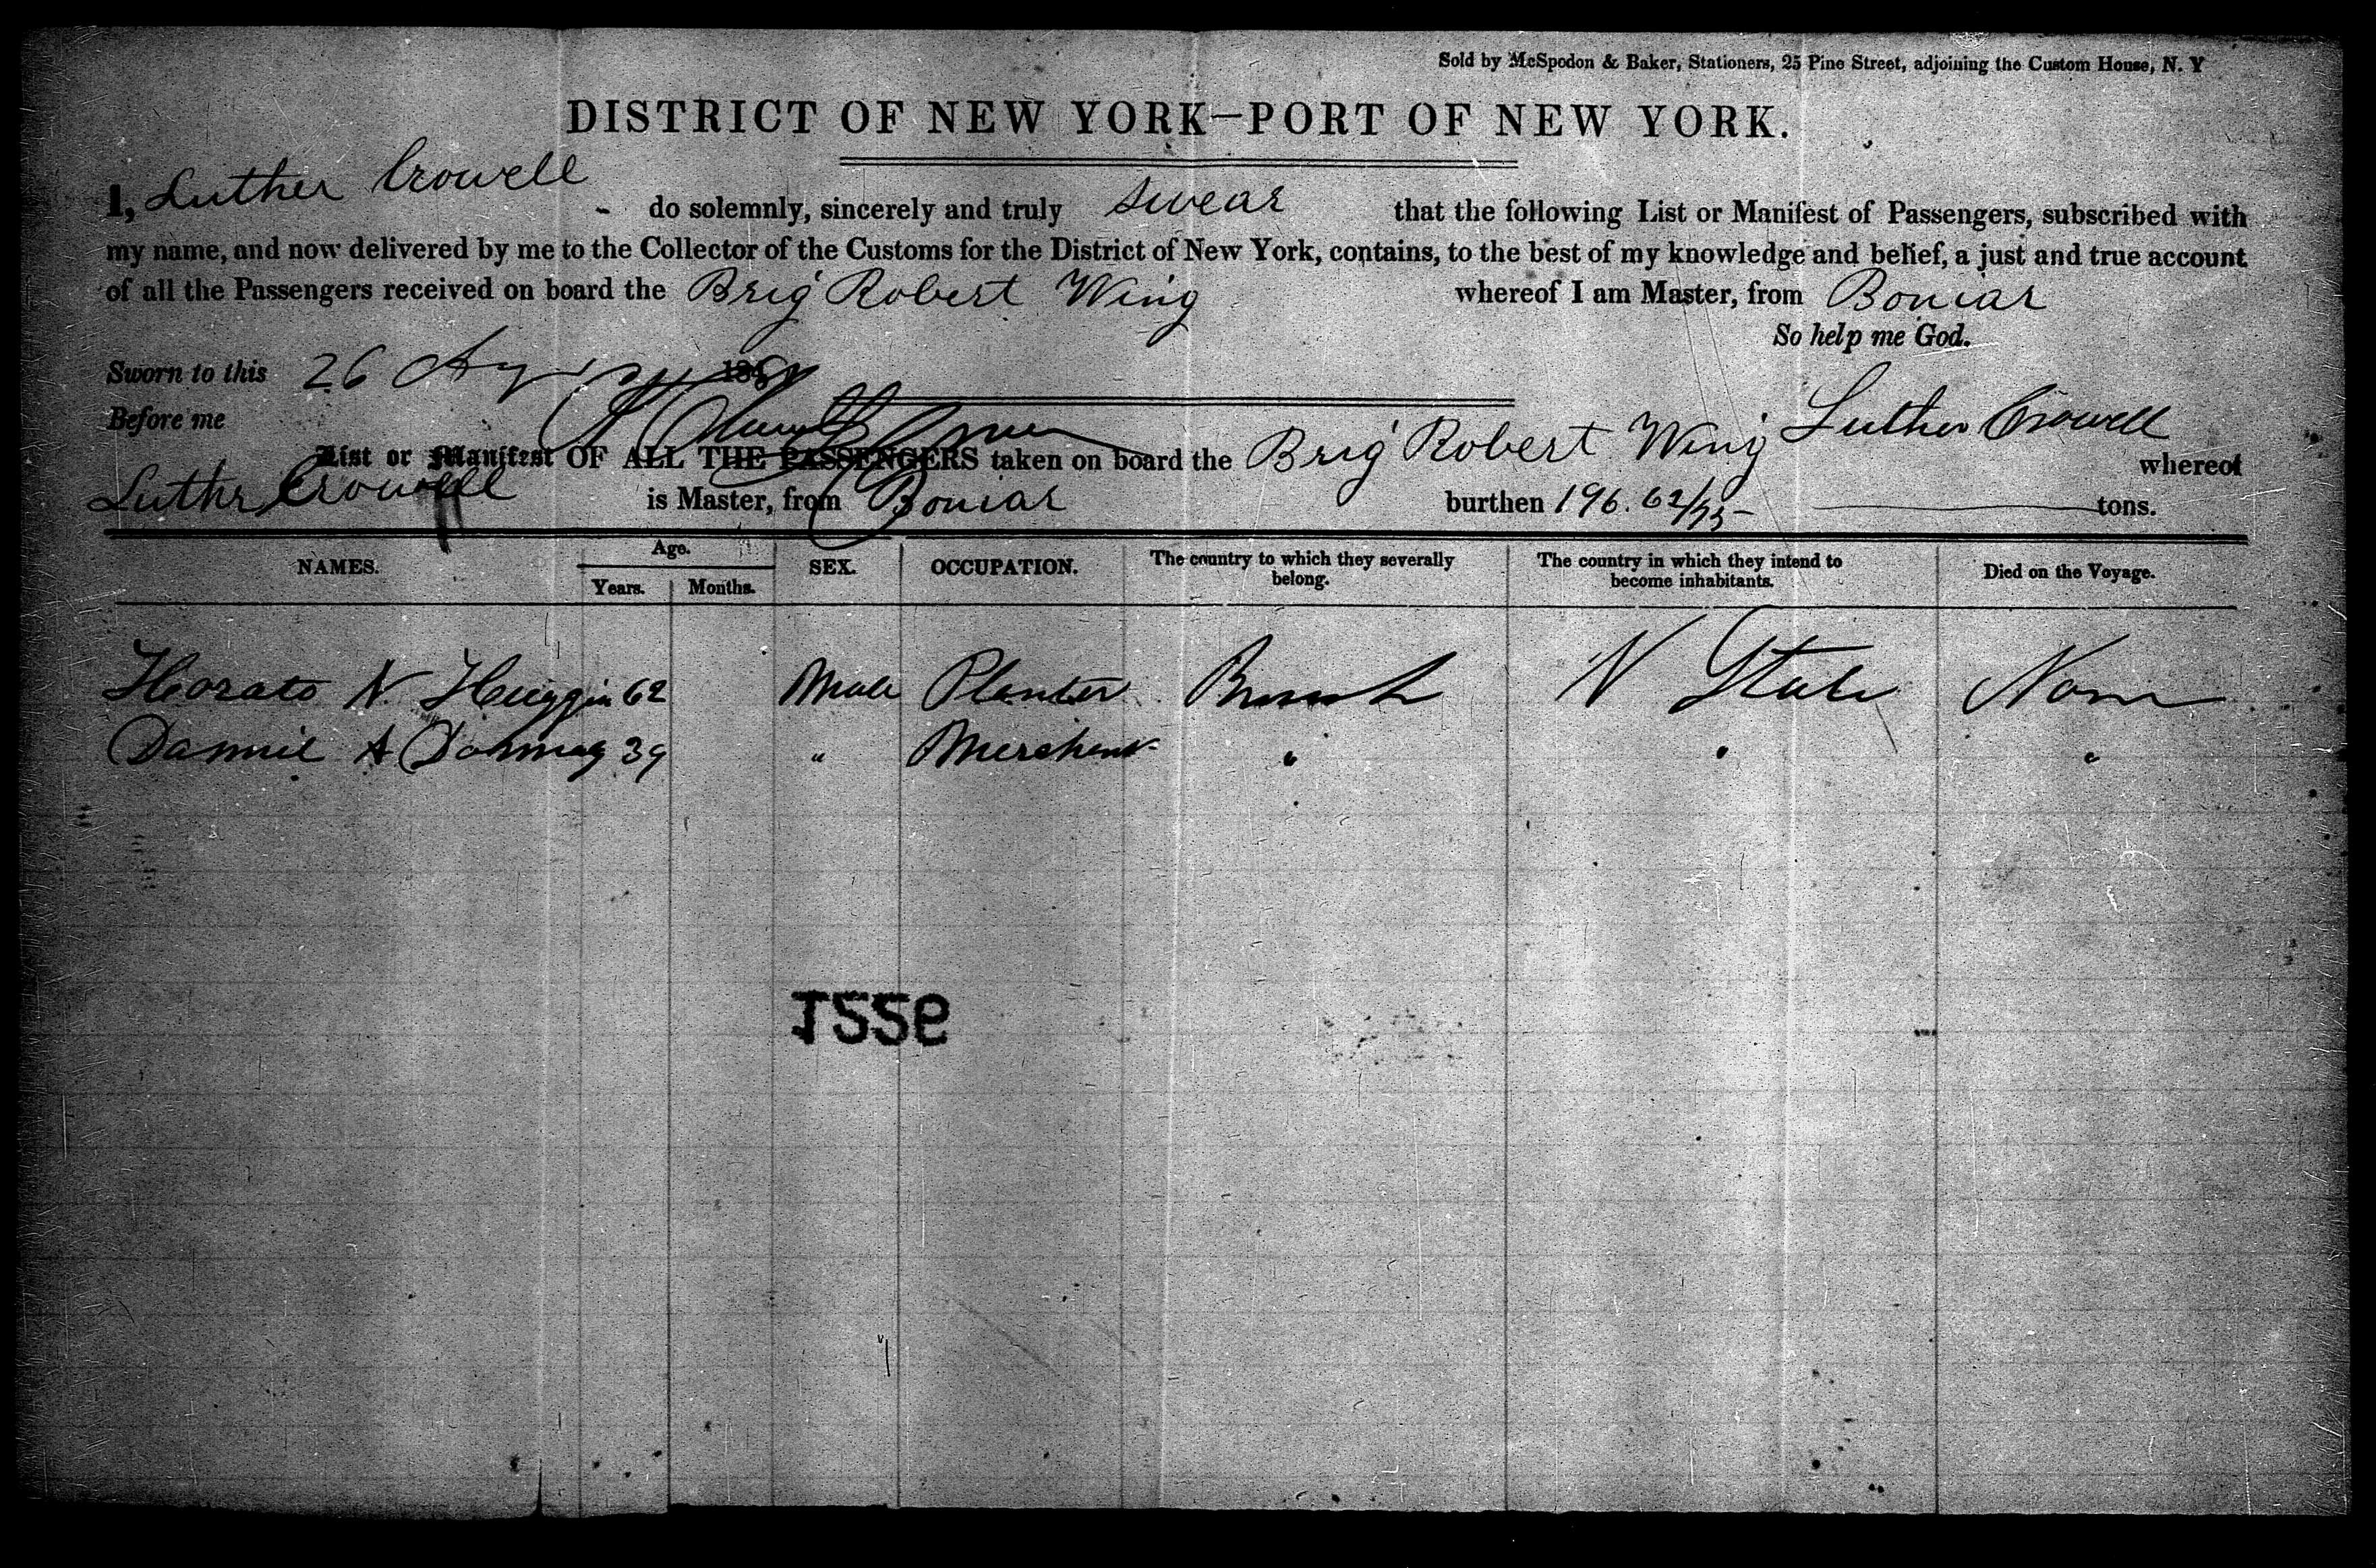 Sold by McSpedon & Baker, Stationers, 25 Pine Street, adjoining the Custom House, N. Y
DISTRICT OF NEW YORK—PORT OF NEW YORK.
I, Luther Crowell do solemnly, sincerely and truly swear that the following List or Manifest of Passengers, subscribed with
my name, and now delivered by me to the Collector of the Customs for the District of New York, contains, to the best of my knowledge and belief, a just and true account
of all the Passengers received on board the Brig Robert Wing whereof I am Master, from Boniar
So help me God.
Sworn to this 26
Before me
Luther Crowell
List or Manifest OF ALL THE PASSENGERS taken on board the Brig Robert Wing whereof
Luthr Crowell is Master, from Boniar burthen 196. 62/95 tons.
NAMES. Age. SEX. OCCUPATION. The country to which they severally belong. The country in which they intend to become inhabitants. Died on the Voyage.
Years. Months.
Horato N. Huggin 62 Male Planter N State None
A 39 " Merchant " " "